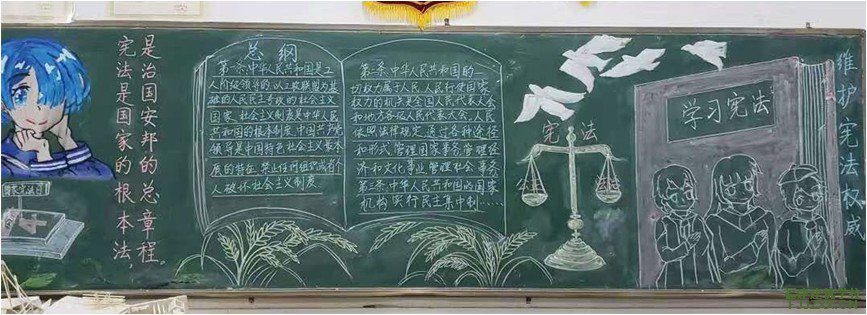 宪法是国家的根本法，
是治国安邦的总章程。
总纲
第一条 中华人民共和国是工
人阶级领导的、以工农联盟为基
础的人民民主专政的社会主义
国家。社会主义制度是中华人民
共和国的根本制度。中国共产党
领导是中国特色社会主义最本
质的特征。禁止任何组织或者个
人破坏社会主义制度
第二条 中华人民共和国的一
切权力属于人民。人民行使国家
权力的机关是全国人民代表大会
和地方各级人民代表大会。人民
依照法律规定，通过各种途径
和形式，管理国家事务，管理经
济和文化事业，管理社会事务
第三条 中华人民共和国的国家
机构实行民主集中制……
宪法
公
学习宪法
维护宪法权威